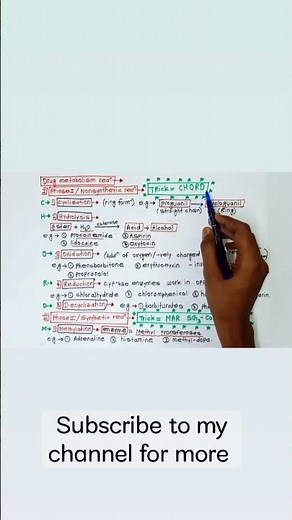 Drug metabolism reaⁿ
① Phase I / Nonsynthetic reaⁿ
Trick = CHORD
C → ① Cyclization → (ring formⁿ) e.g → Proguanil →
(straight chain) (Ring)
H → ② Hydrolysis
Ester + H₂O → Acid + Alcohol
e.g → ① Procainamide ③ Aspirin
② Lidocaine ④ Oxytocin
O → ③ Oxidation → of oxygen / -vely charged
e.g → ① Phenobarbitone ② erythromycin -
③ Propranolol
R → ④ Reduction → CYP450 enzymes work in
e.g → ① chloralhydrate ② chloramphenicol ③
D → ⑤ Decyclization → e.g → ① barbiturates ②
② Phase II / Synthetic reaⁿ
Trick = MAR
M → ① Methylation → enzyme = Methyl transferases
e.g → ① Adrenaline ② histamine ③ methyl-dopa
Subscribe to my
channel for more